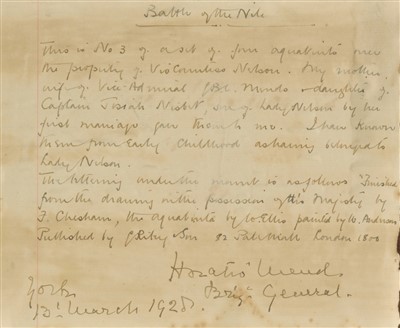 Battle of the Nile
This is No 3 of a set of four aquatints once
the property of Viscountess Nelson. My mother,
wife of Vice Admiral Mends & daughter of
Captain Josiah Nisbet, son of Lady Nelson by her
first marriage gave them to me. I have known
them from early childhood as having belonged to
Lady Nelson.
The lettering under the mount is as follows "Finished
from the drawing in the possession of His Majesty by
F. Chesham, the aquatints by W Ellis painted by W. Anderson
Published by G Riley & Son 83 Pall Mall London 1800
Horatio Mends
Brigr General.
York
March 1928